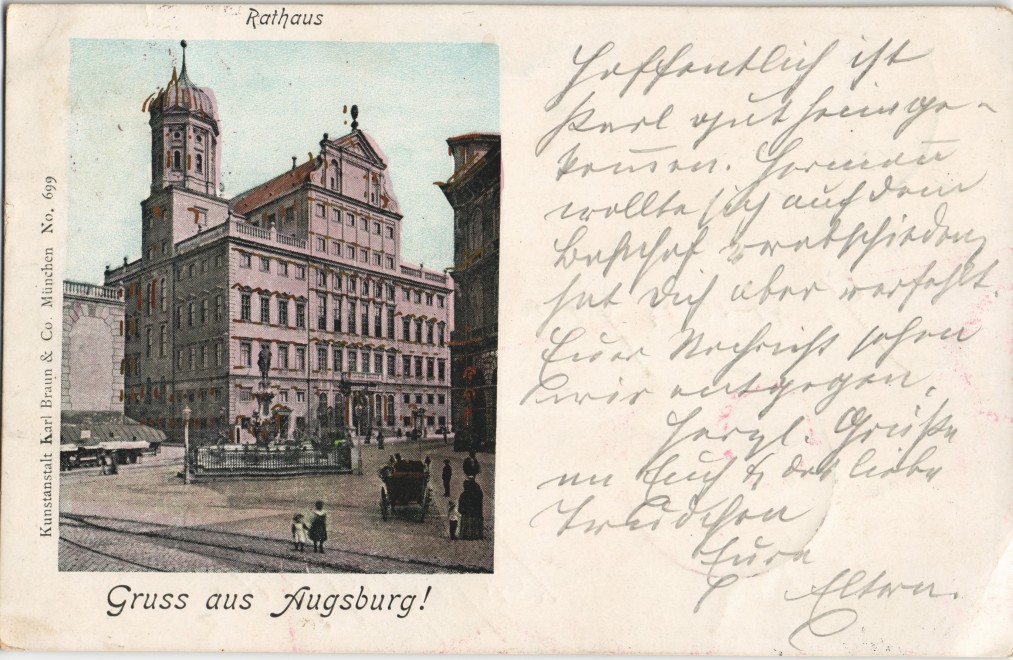 Rathaus
Kunstanstalt Karl Braun & Co. München No. 699
Gruss aus Augsburg!
Hoffentlich ist
Karl gut heimge-
kommen. Hermann
wollte sich auf dem
Bahnhof verabschieden,
hat Dich aber verfehlt.
Eurer Nachricht sehen
wir entgegen.
Herzl. Grüße
an Euch & das liebe
Trudchen
Eure
Eltern.